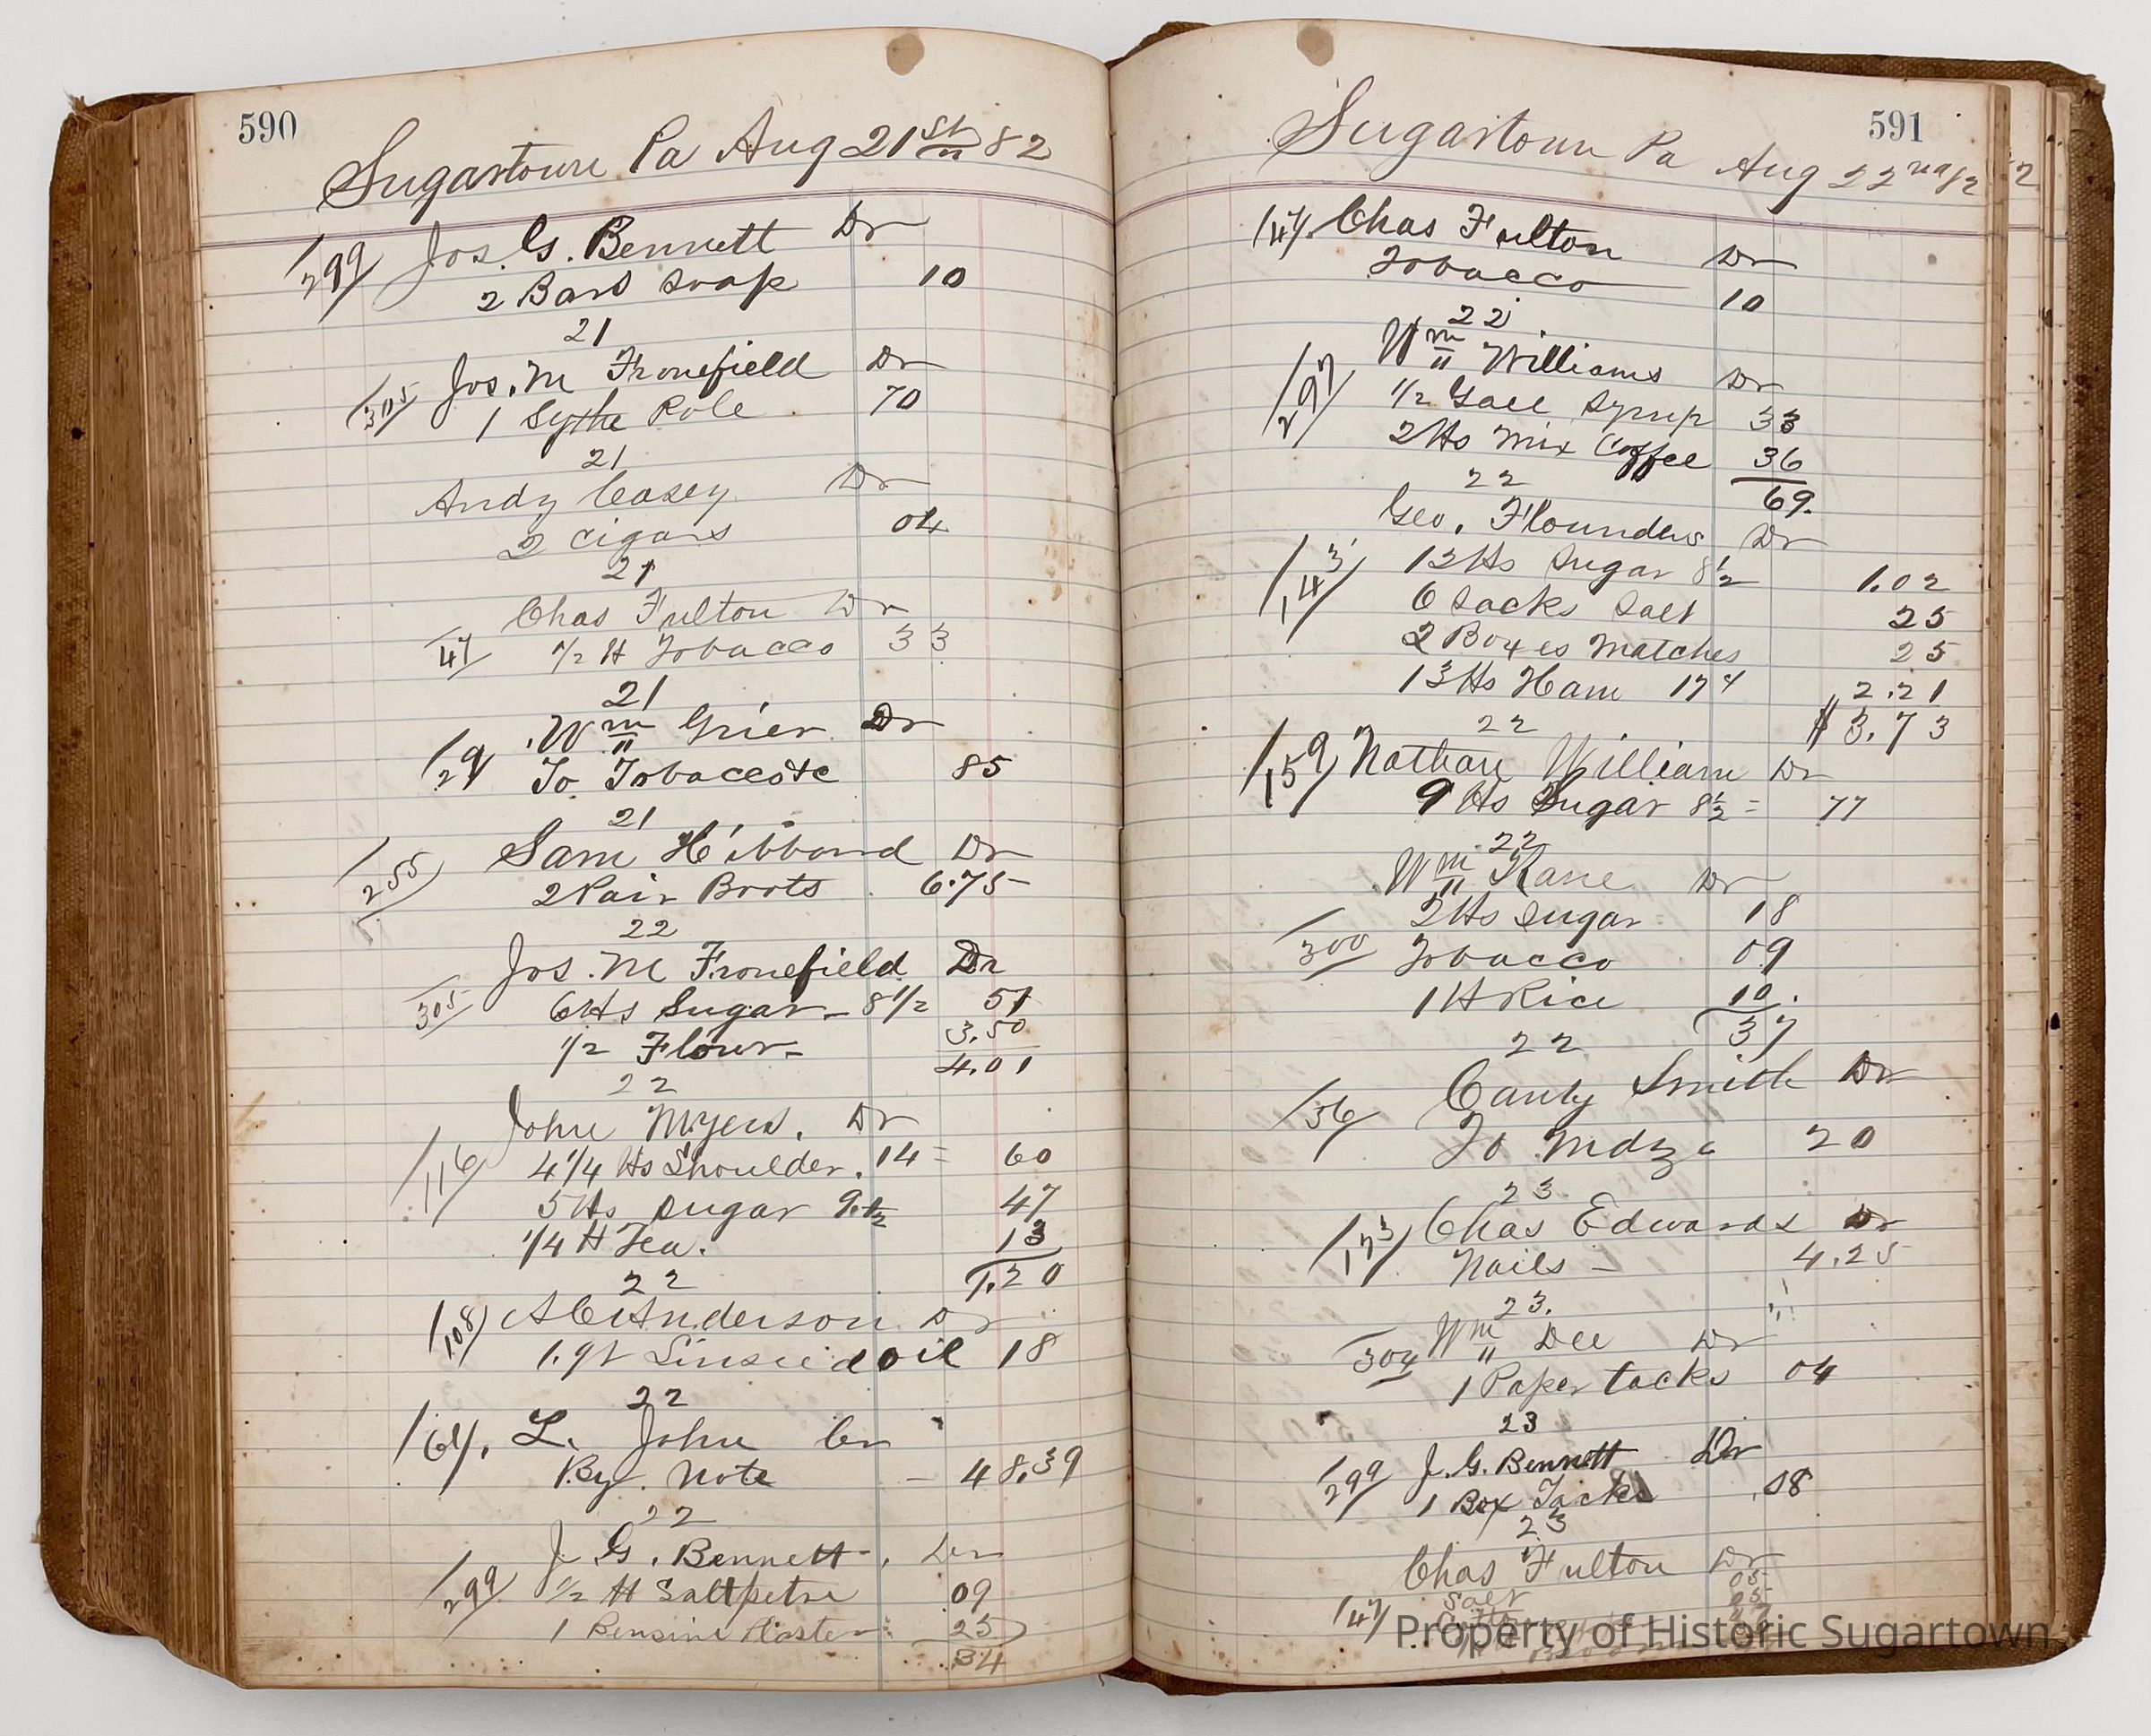 590
Sugartown Pa Aug 21st 82
299 Jos. G. Bennett Dr
2 Bars Soap 10
21
305 Jos. M Fronefield Dr
1 Sythe Pole 70
21
Andy Casey Dr
2 cigars 04
21
Chas Fulton Dr
47 1/2 lb Tobacco 33
21
Wm Grier Dr
29 To Tobacco &c 85
21
255 Sam Hibbard Dr
2 Pair Boots 6.75
22
Jos. M Fronefield Dr
305 6 lbs Sugar - 8 1/2 51
1/2 Flour - 3.50
4.01
22
John Myers. Dr
116 4 1/4 lbs Shoulder. 14 = 60
5 lbs Sugar 9 1/2 47
1/4 lb Tea. 13
1.20
22
108 Anderson Dr
1 qt Linseed oil 18
22
64. L. John Cr
By Note - 48.39
22
J. G. Bennett. Dr
299 1/2 lb Saltpetre 09
1 Bensine Plaster 25
34
591
Sugartown Pa Aug 22nd 82
47 Chas Fulton Dr
Tobacco 10
22
Wm Williams Dr
297 1/2 Gall Syrup 33
2 lbs Mix Coffee 36
69.
22
Geo. Flounders Dr
143 12 lbs Sugar 8 1/2 1.02
6 Sacks Salt 25
2 Boxes Matches 25
13 lbs Ham 17 2.21
$3.73
22
159 Nathan William Dr
9 lbs Sugar 8 1/2 = 77
22
Wm Kane Dr
2 lbs Sugar 18
300 Tobacco 09
1 lb Rice 10.
37
22
36 Smith Dr
To Mdz 20
23
173 Chas Edwards Dr
Nails - 4.25
23.
304 Wm Dee Dr
1 Paper tacks 04
23
299 J. G. Bennett Dr
1 Box Tacks .08
23
Chas Fulton Dr
Salt 05
47
Property of Historic Sugartown